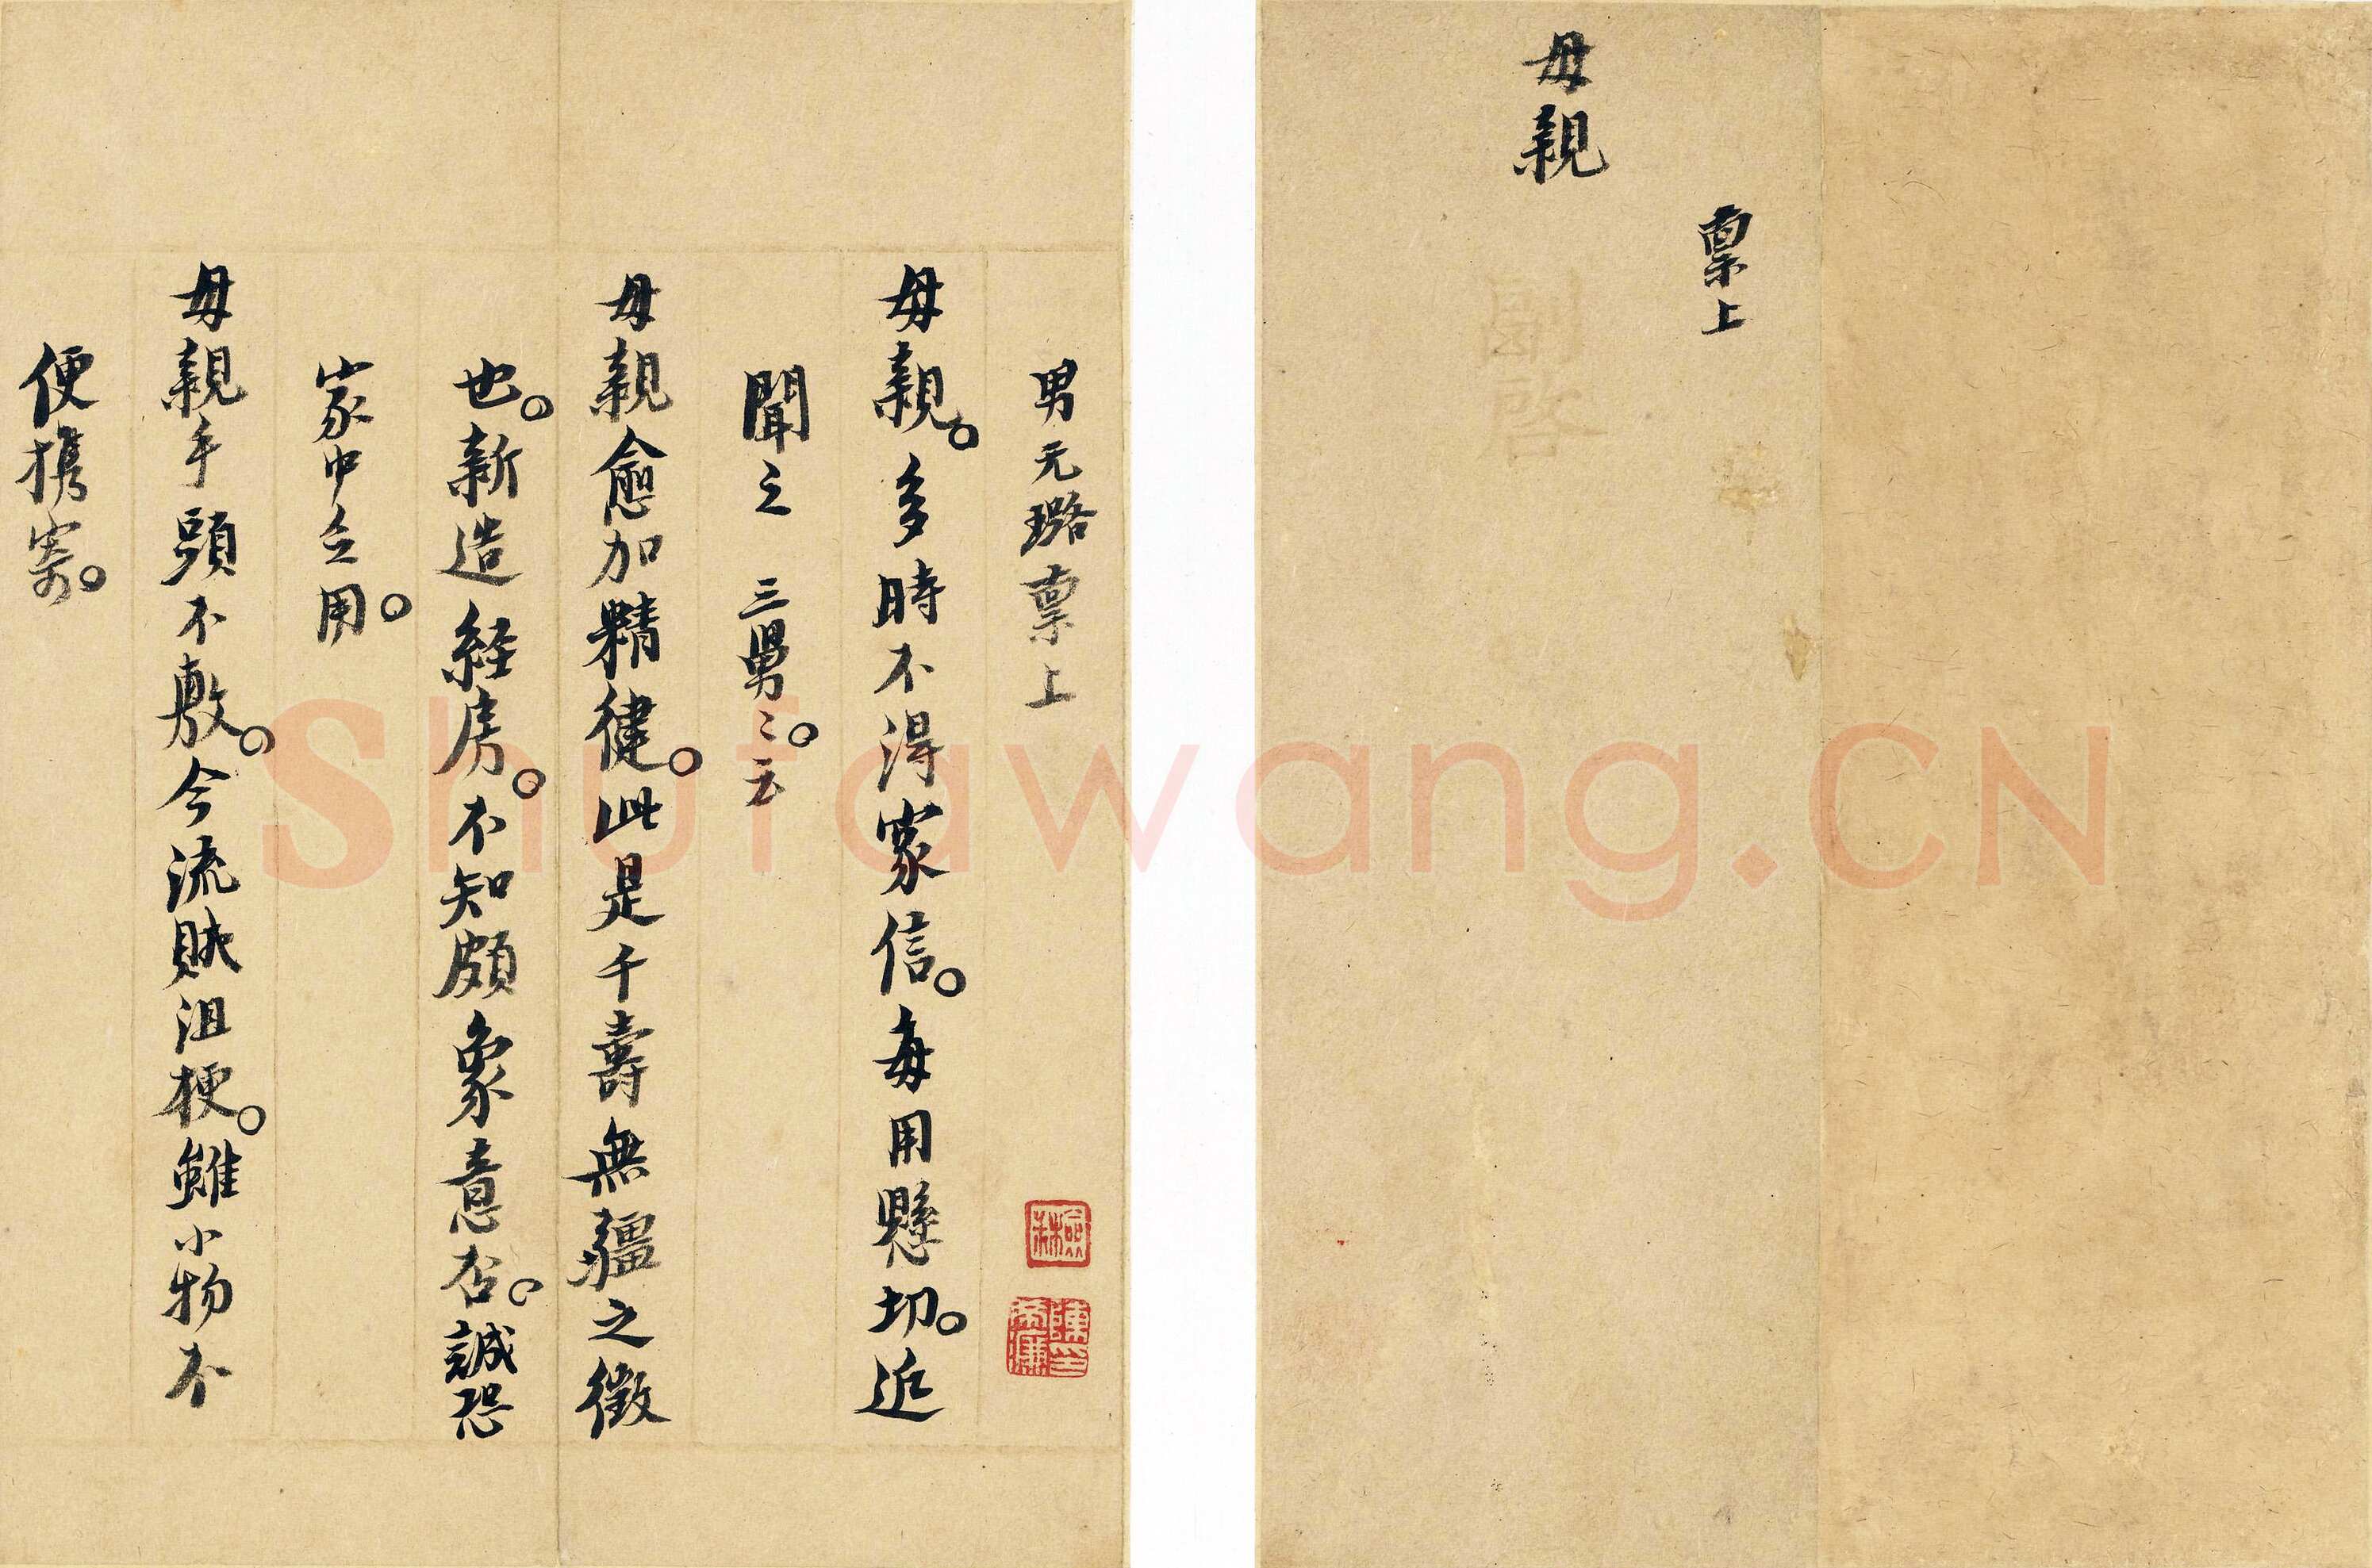 稟上
母親
副啓
男元璐稟上
母親。多時不得家信。每用懸切。近
聞之 三舅〻。云
母親愈加精健。此是千壽無疆之徵
也。新造經房。不知頗象意否。誠恐
家中乏用。
母親手頭不敷。今流賊沮梗。雖小物不
便携寄。
Shufawang.CN